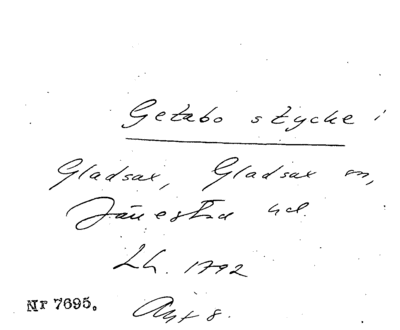 Getabo stycke i
Gladsax, Gladsax sn,
Järrestad hd.
Lh. 1792
Akt 8.
Nr 7695.